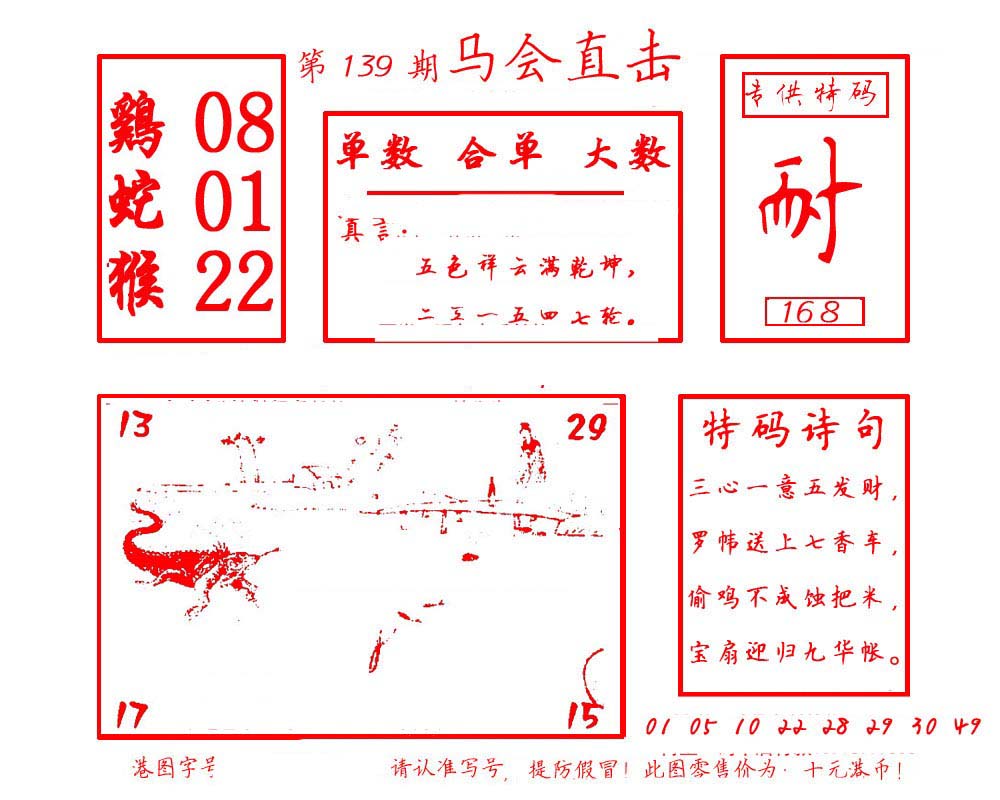 第 139 期 马会直击
鷄 08
蛇 01
猴 22
单数 合单 大数
真言:
五色祥云满乾坤,
二五一五四七轮。
专供特码
耐
168
13
29
17
15
特码诗句
三心一意五发财,
罗帏送上七香车,
偷鸡不成蚀把米,
宝扇迎归九华帐。
01 05 10 22 28 29 30 49
港图字号
请认准写号, 提防假冒! 此图零售价为·十元港币!